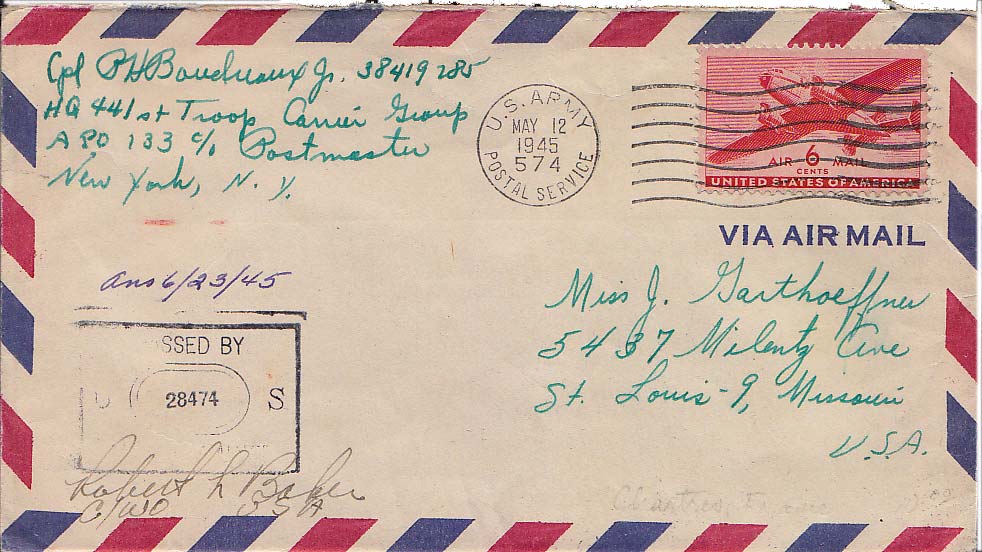 Cpl PH Boudreaux Jr. 38419285
HQ 441st Troop Carrier Group
APO 133 c/o Postmaster
New York, N.Y.
U.S. ARMY
MAY 12
1945
574
POSTAL SERVICE
AIR 6 MAIL
CENTS
UNITED STATES OF AMERICA
VIA AIR MAIL
Ans 6/23/45
SSED BY
U 28474 S
Robert L Baker
C/WO USA
Miss J. Garthoeffner
5437 Milentz Ave
St. Louis-9, Missouri
U.S.A.
Chartres, France